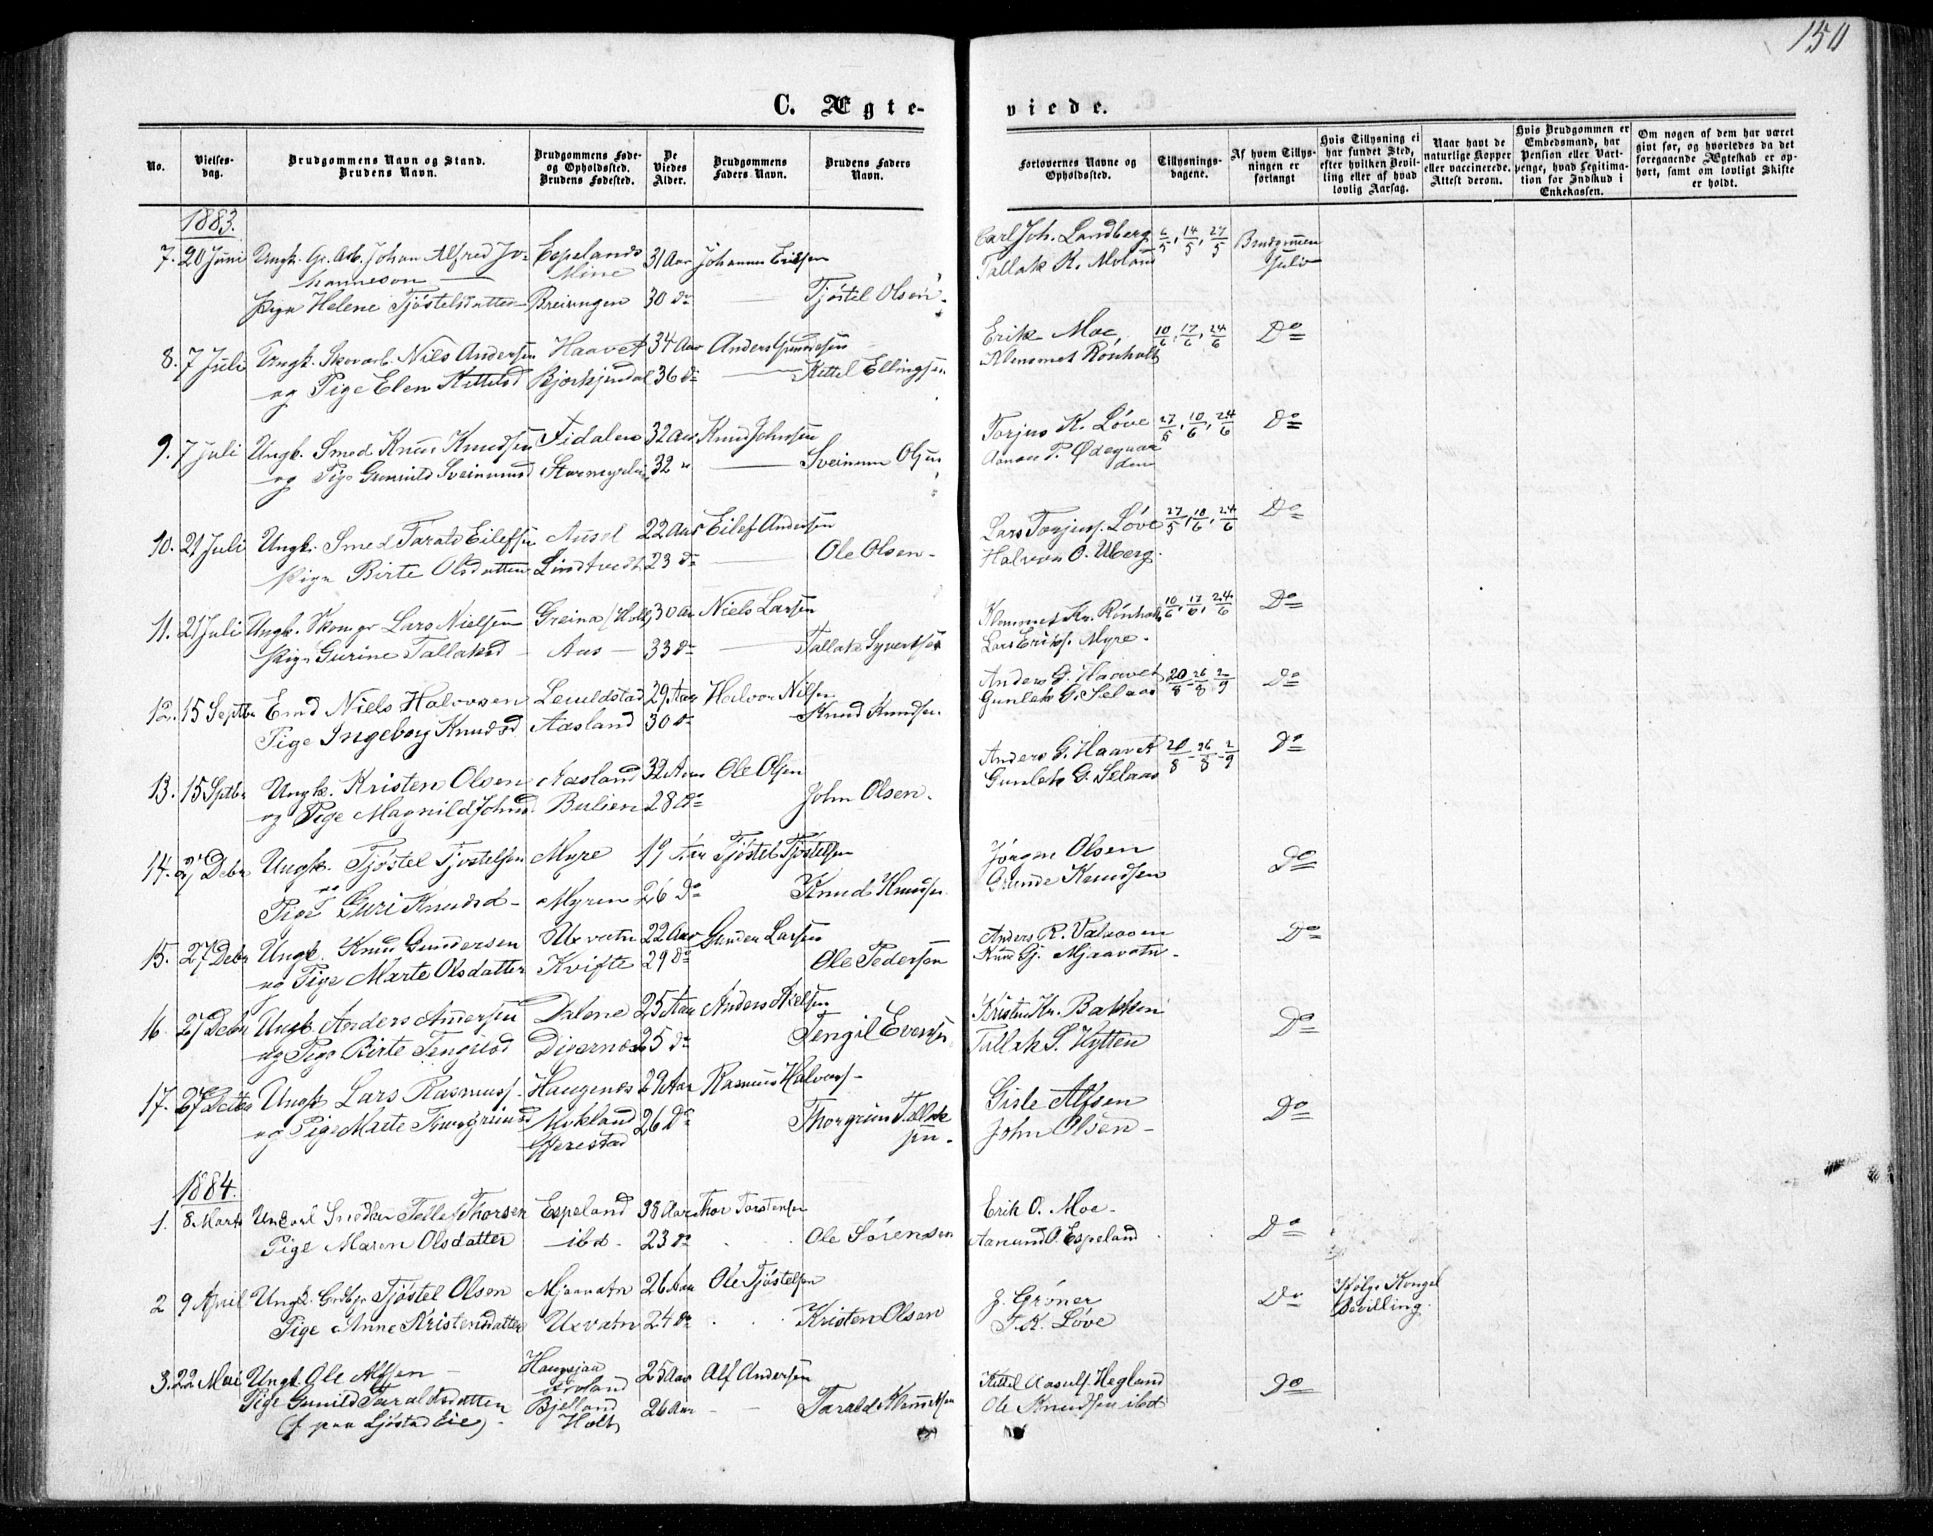 150
C. Ægte-
viede.
No.
Vielses-
dag.
Brudgommens Navn og Stand.
Brudens Navn.
Brudgommens Føde-
og Opholdssted.
Brudens Fødested.
De
Viedes
Alder.
Brudgommens
Faders Navn.
Brudens Faders
Navn.
Forlovernes Navne og
Opholdssted.
Tillysnings-
dagene.
Af hvem Tillys-
ningen er
forlangt
Hvis Tillysning ei
har fundet Sted,
efter hvilken Bevil-
ling eller af hvad
lovlig Aarsag.
Naar havt de
naturlige Kopper
eller vaccinerede.
Attest derom.
Hvis Brudgommen er
Embedsmand, har
Pension eller Vart-
penge, hvad Legitima-
tion for Indskud i
Enkekassen.
Om nogen af dem har været
givt før, og hvorledes da det
foregaaende Ægteskab er op-
hørt, samt om lovligt Skifte
er holdt.
1883.
7. 20 Juni Ungk. Gr. Arb. Johan Alfred Jo- Espelands 31 Aar Johannes Carl Joh. Landberg 6/5, 14/5, 27/5 Brudgommen
hanneson Mine Tallak K.
Pige Helene Tjöstelsdatter Breivngen 30 do Tjöstel Olsen
8. 7 Juli Ungk. Skovarb. Nils Andersen Haavet 34 Aar Anders Gunnersen Erik Moe, 10/6, 17/6, 24/6 Do
og Pige Elen Kittelsd Bjorhjendal 36 do Kittel Ellingsen Klemmet Rönholt
9. 7 Juli Ungk. Smed Knud Knudsen Fidalen 32 Aar Knud Johnsen Torjus K. Löve 27/5, 10/6, 24/6 Do
og Pige Gunnild Sveinunsd 32 " Sveinun Olsen P. Ødegaar
den
10. 21 Juli Ungk. Smed Tarald Eilefsen Ausel 22 Aar Eilef Andersen Lars Torjuss. Löve 27/5, 10/6, 24/6 Do
Pige Birte Olsdatter Lindtvedt 23 do Ole Olsen Halvor O. Uberg.
11. 21 Juli Ungk. Lars Nielsen Greina (Holt) 30 Aar Niels Larsen Klemmet Kr. Rönholt 10/6, 17/6, 24/6 Do
Pige Gurine Tallaksd Aas 33 do Tallak Syvertsen Lars Eriks. Myre.
12. 15 Septbr Emd Niels Halvorsen 29 Aar Halvor Nilsen Anders G. Haavet 20/8 - 26/8 - 2/9 Do
Pige Ingeborg Knudsd Aasland 30 do Knud Knudsen Gunlek G. Selaas
13. 15 Septbr Ungk. Kristen Olsen Aasland 32 Aar Ole Olsen Anders G. Haavet 20/8 - 26/8 - 2/9 Do
og Pige Magnild Johnsd Bulien 28 do John Olsen. Gunlek G. Selaas
14. 27 Debr Ungk. Tjöstel Tjostelsen Myre 19 Aar Tjöstel Tjöstelsen Jörgen Olsen Do
og
Pige Guri Knudsd - Myren 26 do Knud Knudsen Grunde Knudsen
15. 27 Debr Ungk. Knud Gundersen Uxvatn 22 Aar Gunder Larsen Anders R. Valaasen Do
og Pige Marte Olsdatter Kvifte 29 do Ole Pedersen Knud Gj. Mjaavatn.
16 27 Debr Ungk. Anders Andersen Dalene 25 Aar Anders Nielsen Kristen Kn. Bakken Do
og Pige Birte Tengilsd Divernæs 25 do Tengil Evensen Tallak S. Hytten
17. 27 Decbr Ungk Lars Rasmuss. Haugenes 29 Aar Rasmus Halvors. Gisle Alfsen Do
og Pige Marte Thorgrimsd Mokland 26 do Thorgrim Tallak John Olsen
Gjerestad sen.
1884.
1. 8 Marts Ungkarl Snedker Tellef Thorsen Espeland 38 Aar Thor Torstensen Erik O. Moe. Do
Pige Maren Olsdatter ibd. 23 do Ole Sørensen Aanund O. Espeland
2 9 April Ungk. Grdbr Tjöstel Olsen Mjaavatn 26 Aar Ole Tjöstelsen J. Gröner Do Ifölge Kongel
Pige Anne Kristensdatter Uxvatn 24 do Kristen Olsen T. K. Löve Bevilling.
3. 22 Mai Ungk. Ole Alfsen Haugsjaa 25 Aar Alf Andersen Kittel Aasulfs. Hegland Do
Froland
Pige Gunild Taraldsdatter Bjelland 26 Aar Tarald Ole Knudsen ibd.
(f. paa Ljöstad Eie) Holt